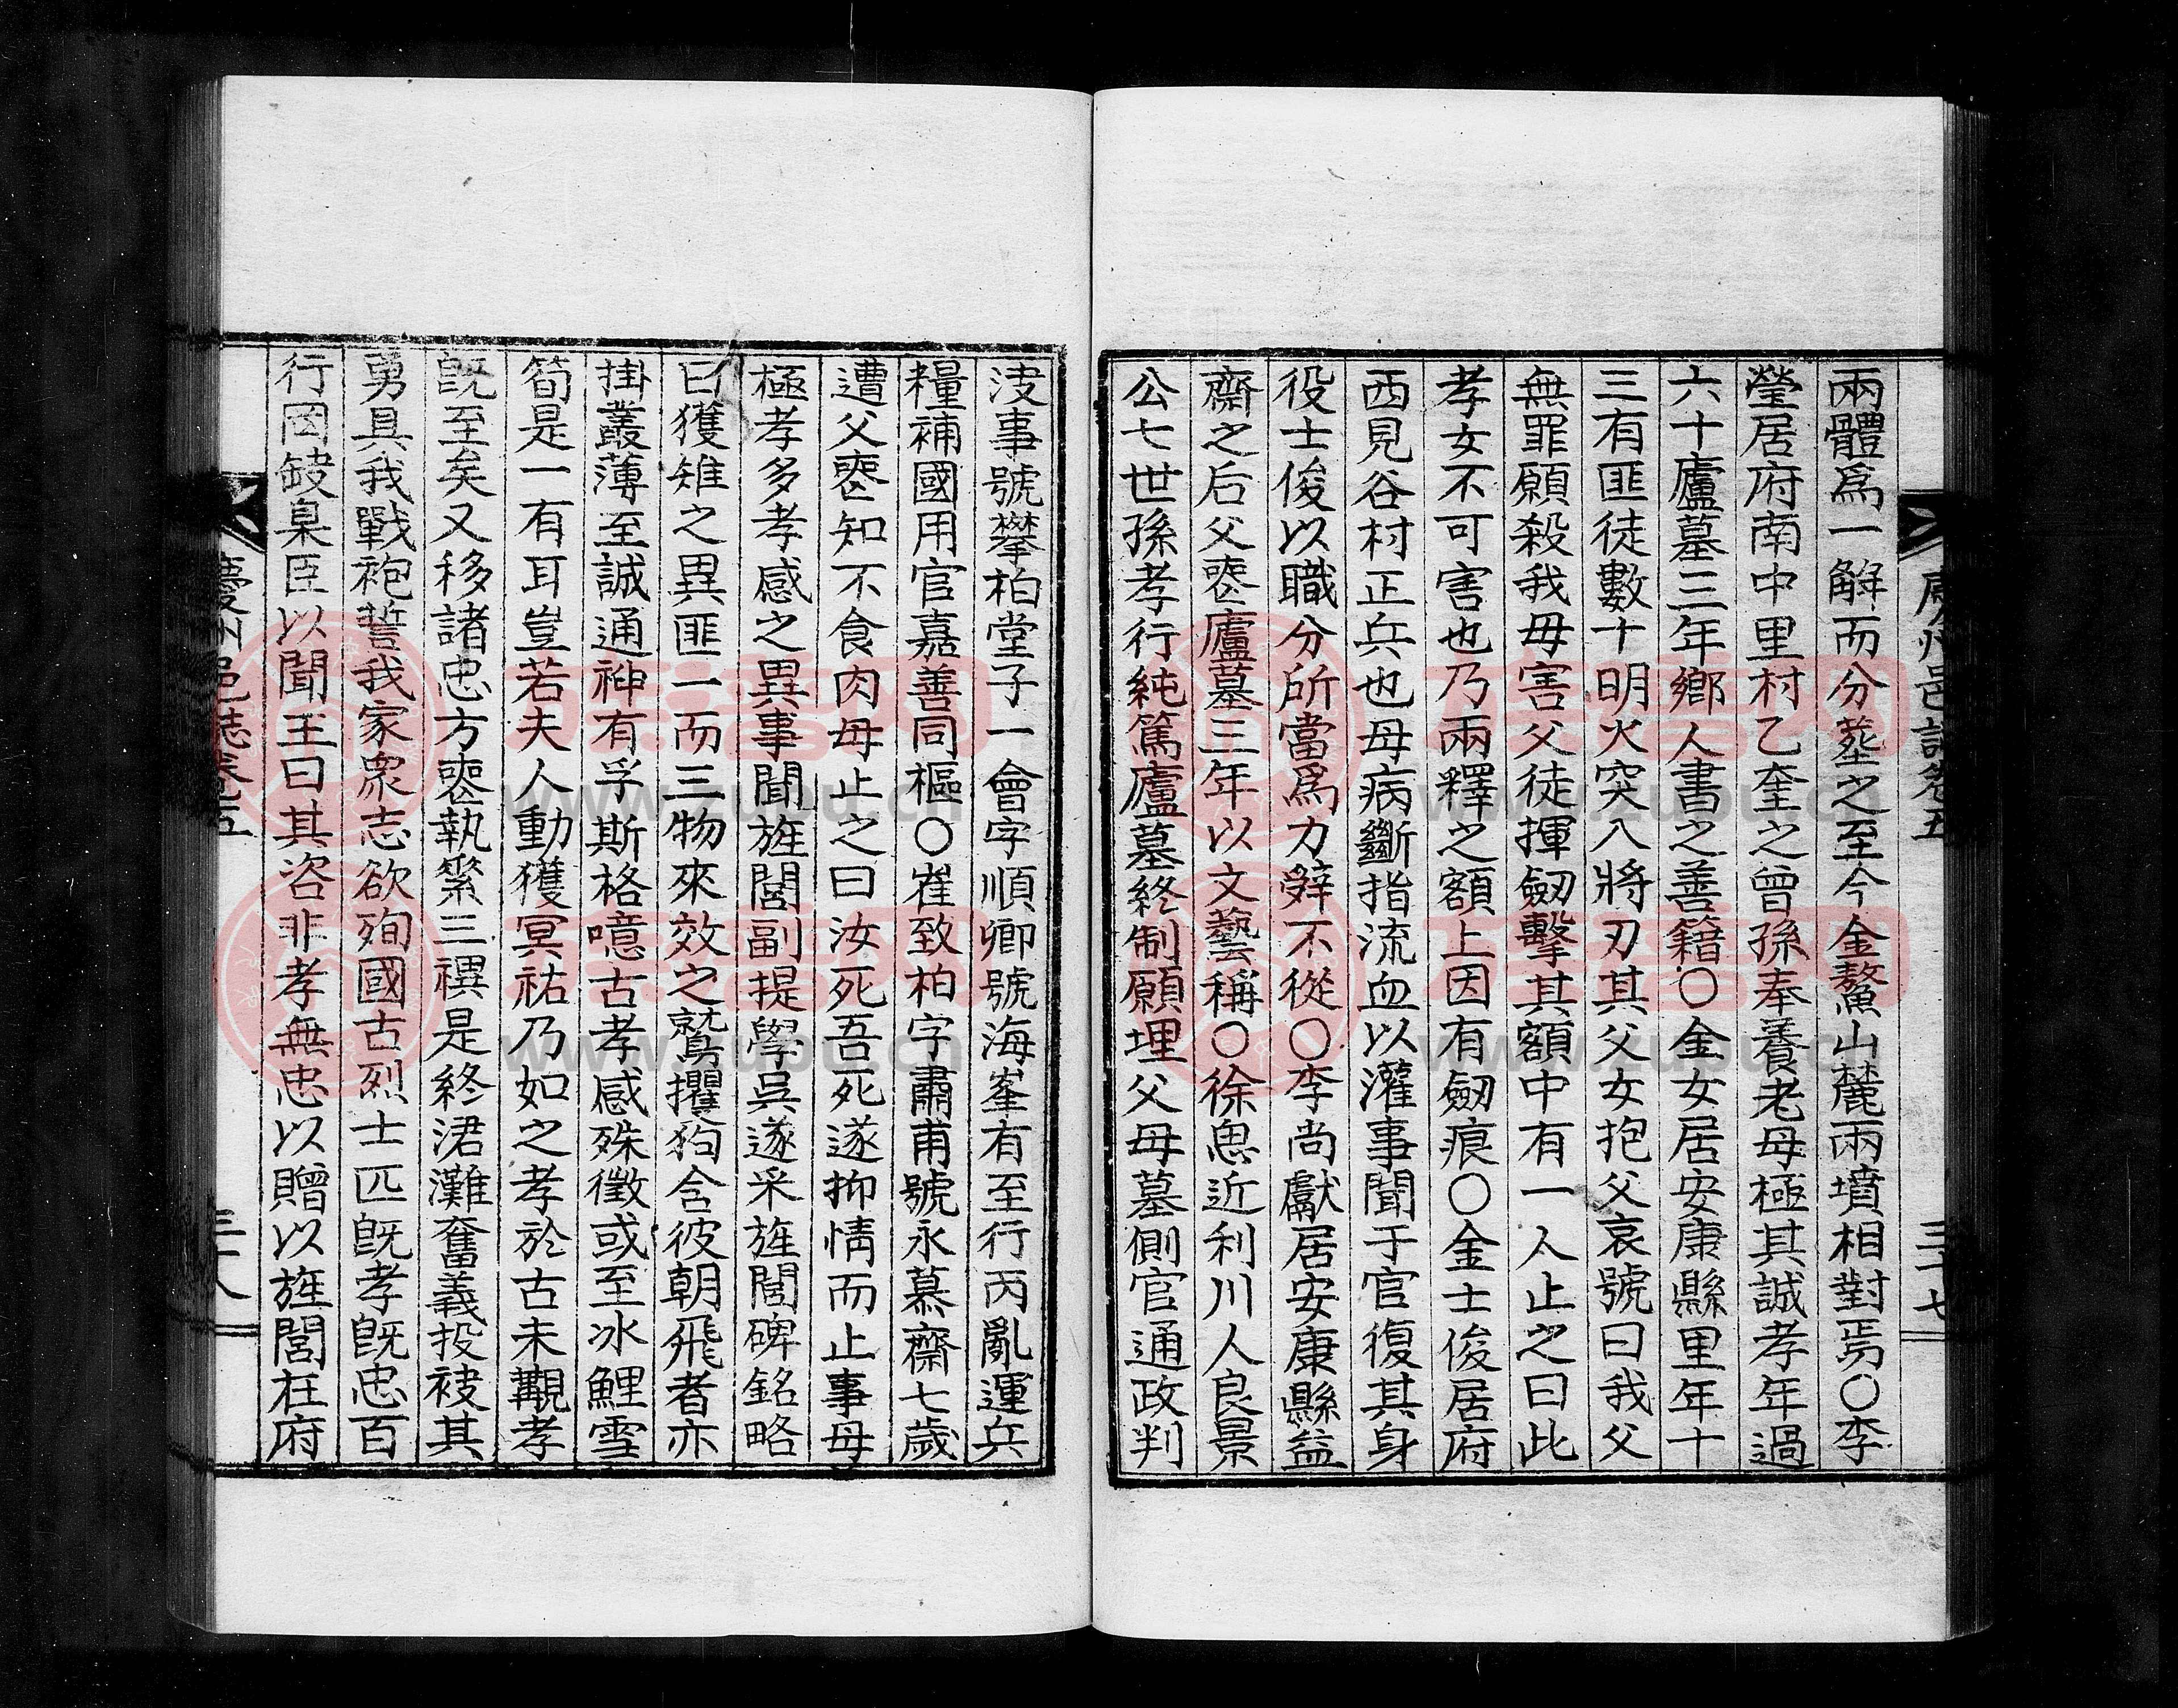 慶州邑誌卷五
三十七
兩體爲一解而分葬之至今金鰲山麓兩墳相對焉〇李
瑩居府南中里村乙奎之曾孫奉養老母極其誠孝年過
六十廬墓三年鄉人書之善籍〇金女居安康縣里年十
三有匪徒數十明火突入將刃其父女抱父哀號曰我父
無罪願殺我毋害父徒揮劒擊其額中有一人止之曰此
孝女不可害也乃兩釋之額上因有劒痕〇金士俊居府
西見谷村正兵也母病斷指流血以灌事聞于官復其身
役士俊以職分所當爲力辤不從〇李尚獻居安康縣益
齋之后父喪廬墓三年以文藝稱〇徐思近利川人良景
公七世孫孝行純篤廬墓終制願埋父母墓側官通政判
决事號攀柏堂子一會字順卿號海峯有至行丙亂運兵
糧補國用官嘉善同樞〇崔致柏字肅甫號永慕齋七歲
遭父喪知不食肉母止之曰汝死吾死遂抑情而止事母
極孝多孝感之異事聞旌閭副提學吳遂采旌閭碑銘略
曰獲雉之異匪一而三物來效之鷲攫狗含彼朝飛者亦
掛叢薄至誠通神有孚斯格噫古孝感殊徵或至冰鯉雪
筍是一有耳豈若夫人動獲冥祐乃如之孝於古未覯孝
旣至矣又移諸忠方喪執縏三禩是終涒灘奮義投袂其
勇具我戰袍誓我家衆志欲殉國古烈士匹旣孝旣忠百
行罔缺臬臣以聞王曰其咨非孝無忠以贈以旌閭在府
慶州邑誌卷五
三十八